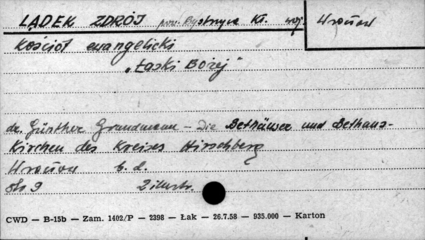 LĄDEK ZDRÓJ pow. Bystrzyca Kł. woj. Wrocław
Kościół ewangelicki
„Łaski Bożej”
dr. Günther Grundmann – Die Bethäuser und Bethaus-
Kirchen des Kreises Hirschberg
Wrocław b. d.
Str 9 2 ilustr.
CWD — B-15b — Zam. 1402/P — 2398 — Łak — 26.7.58 — 935.000 — Karton